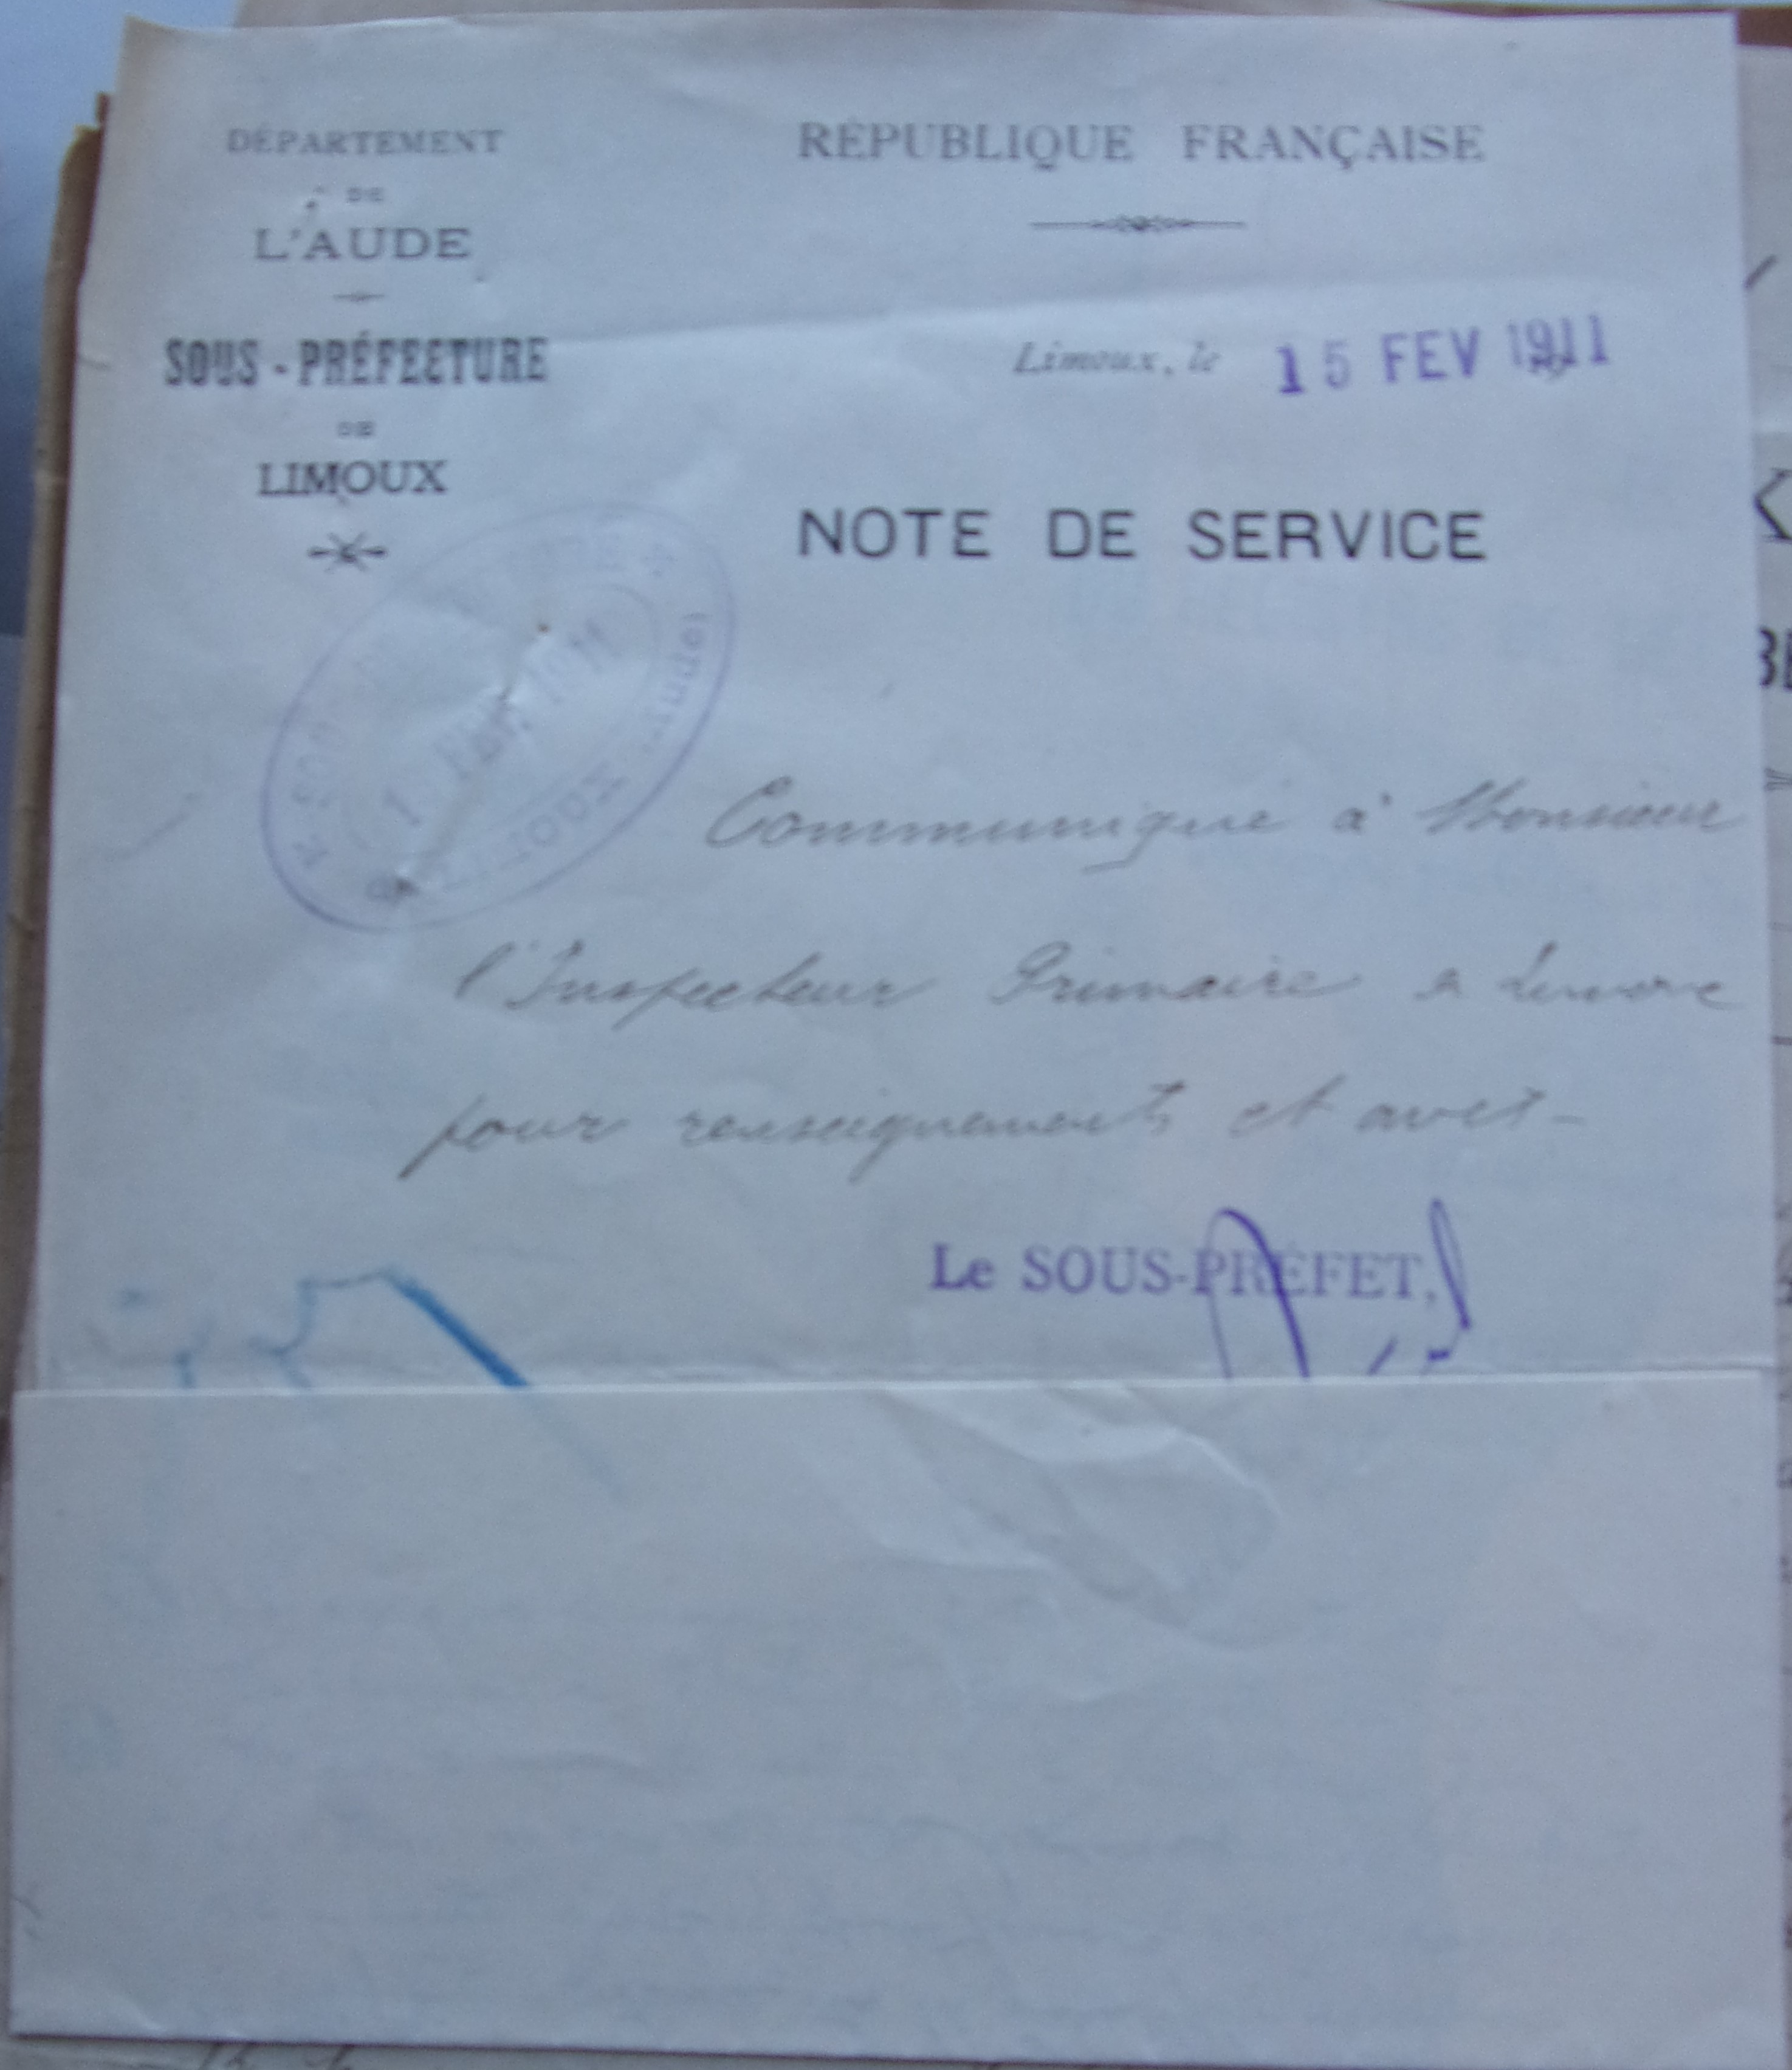 DÉPARTEMENT
DE
L'AUDE
SOUS-PRÉFECTURE
DE
LIMOUX
RÉPUBLIQUE FRANÇAISE
Limoux, le 15 FEV 1911
NOTE DE SERVICE
LIMOUX (Aude)
Communiqué à Monsieur
l'Inspecteur Primaire à Limoux
pour renseignements et avis-
Le SOUS-PRÉFET,